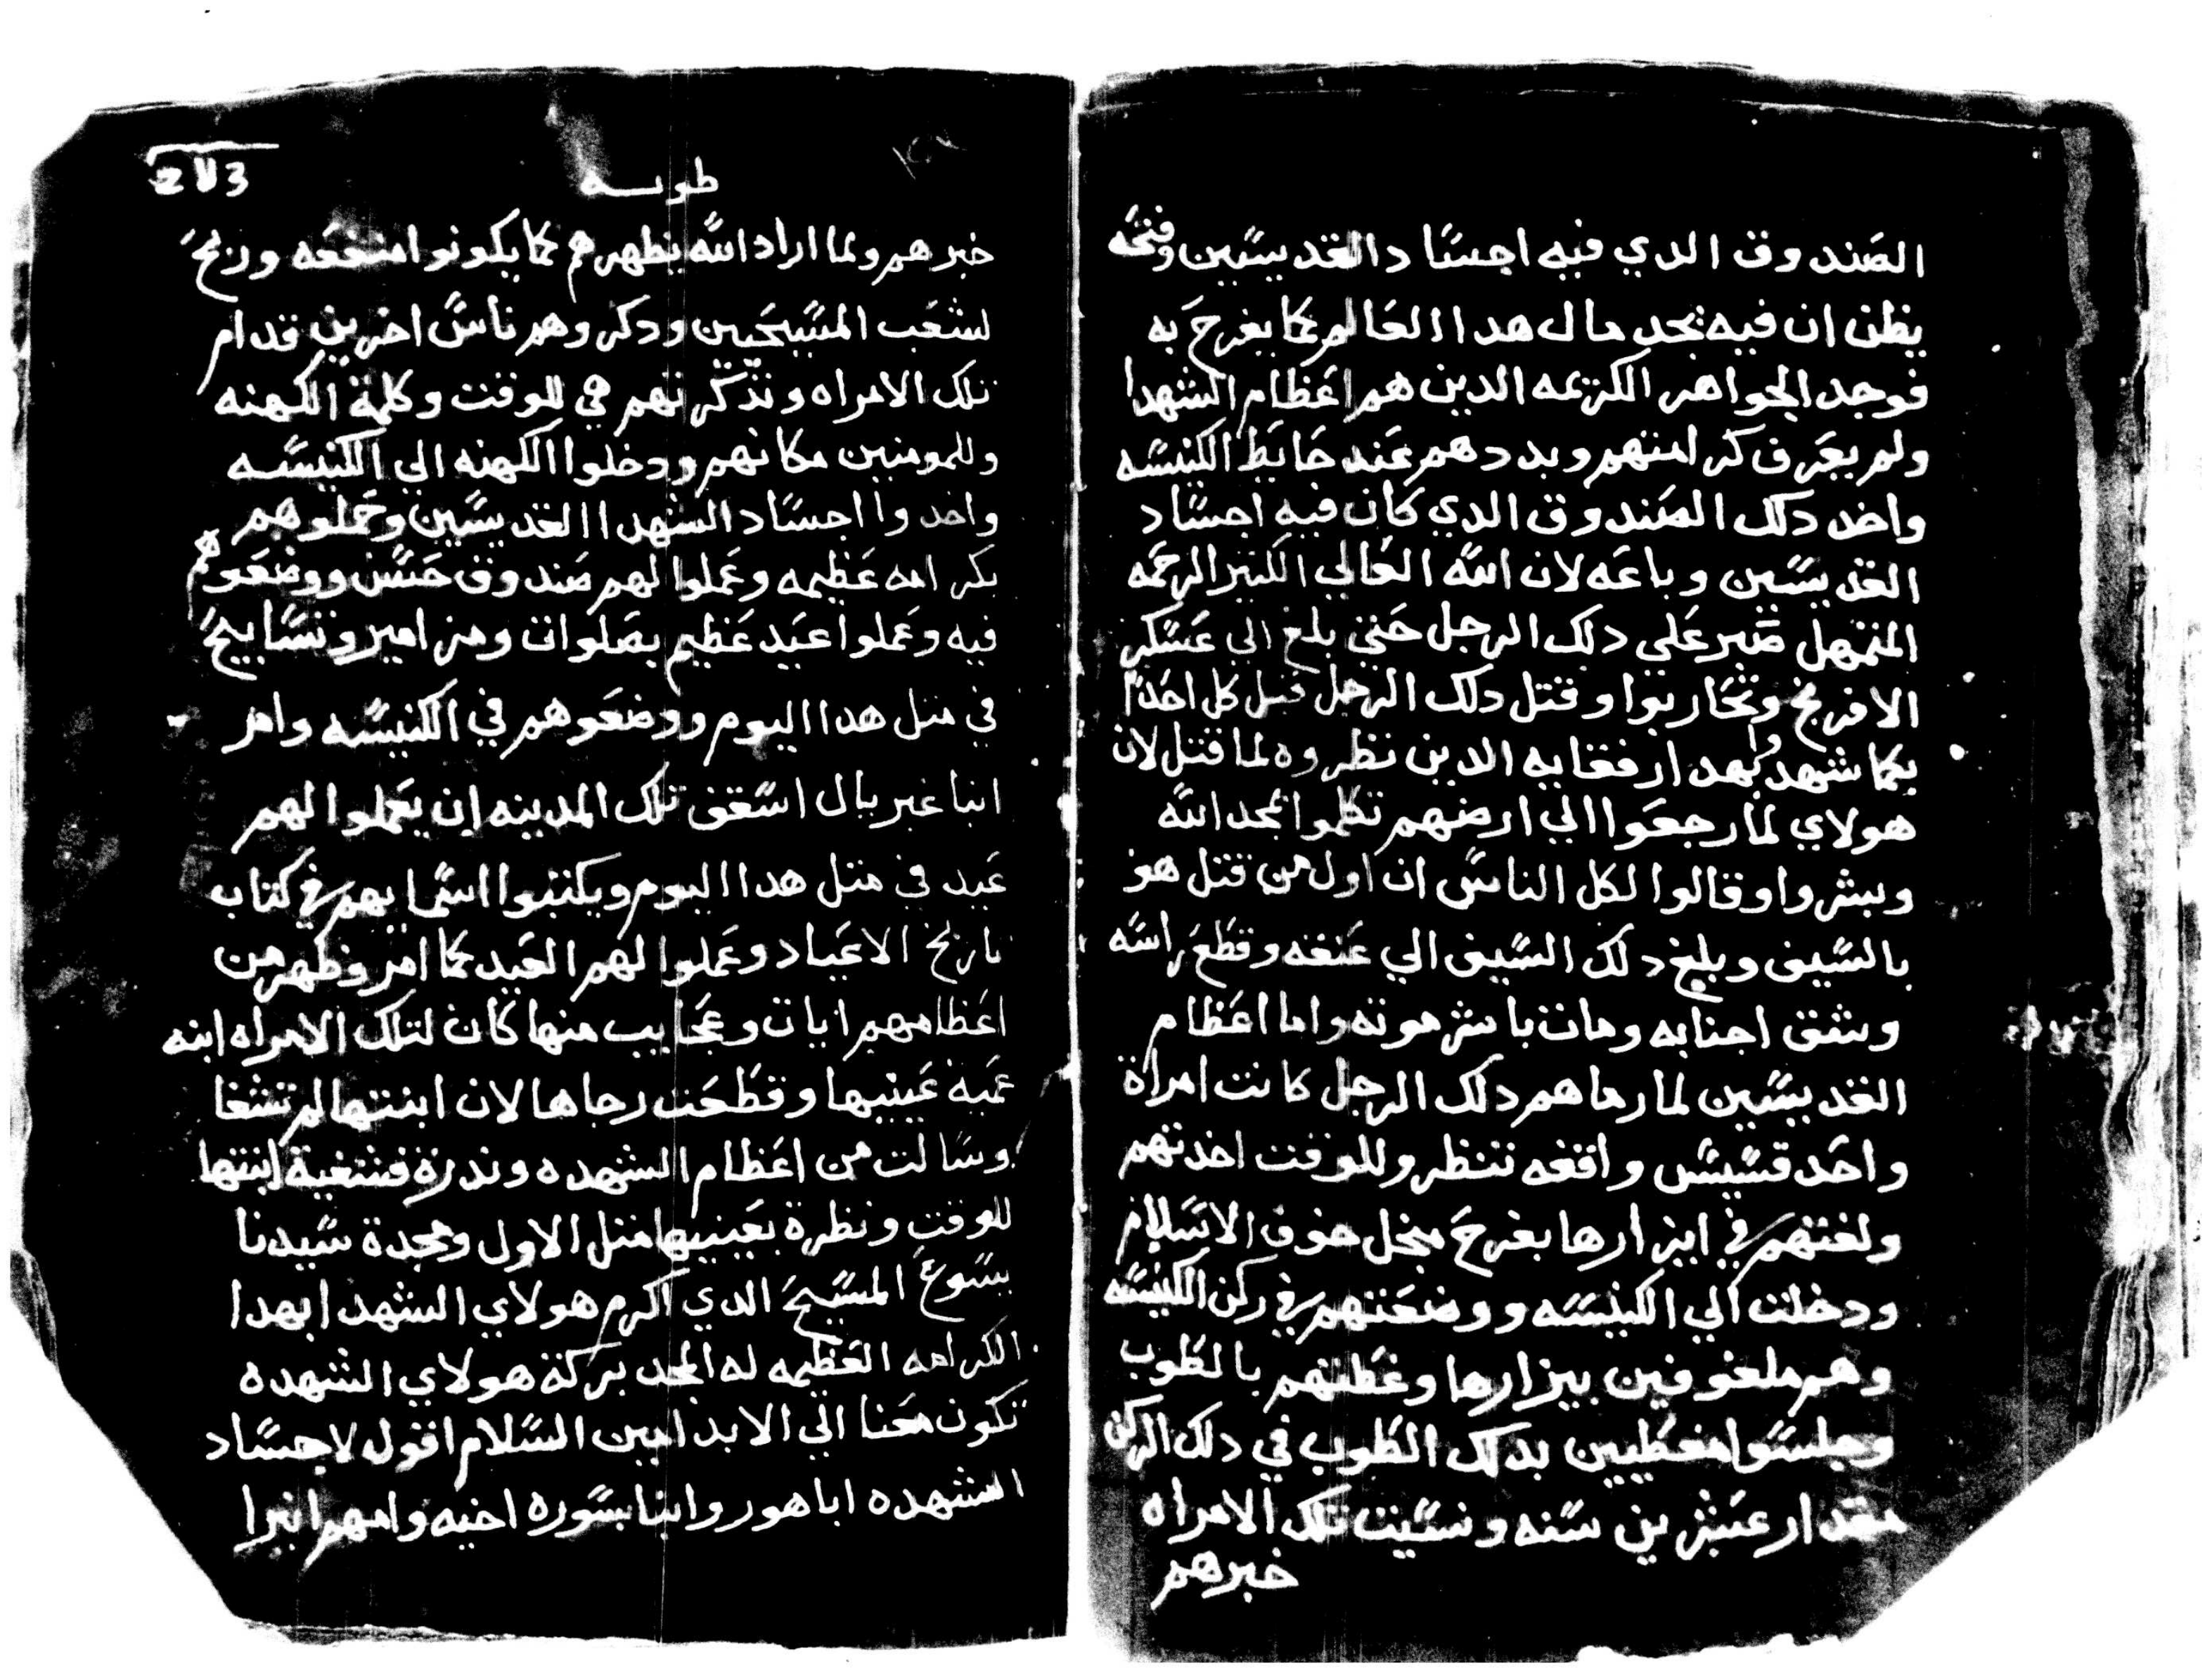 الصندوق الدي فيه اجساد القديسين وفتحه
يظن ان فيه يجد مال هدا العالم كما يفرح به
فوجد الجواهر الكريمه الدين هم اعظام الشهدا
ولم يعرف كرامتهم وبددهم عند حايط الكنيسه
واخد دلك الصندوق الدي كان فيه اجساد
القديسين وباعه لان الله العالي الكتير الرحمه
المتمهل صبر علي دلك الرجل حتي بلغ الي عسكر
الافرنج وتحاربوا وقتل دلك الرجل قبل كل احد
بكما شهد وابهدا رفقايه الدين نظروه لما قتل لان
هولاي لما رجعوا الي ارضهم تكلموا بمجد الله
وبشروا وقالوا لكل الناس ان اول من قتل هو
بالسيف وبلغ دلك السيف الي عنقه وقطع راسه
وشق اجنابه ومات باشر موته واما اعظام
القديسين لما رماهم دلك الرجل كانت امراة
واحد قسيس واقفه تنظر وللوقت اخدتهم
ولفتهم في ايزارها بفرح من اجل خوف الاسلام
ودخلت الي الكنيسه ووضعتهم في ركن الكنيسه
وهم ملفوفين بيزارها وغطتهم بالطوب
وجلسوا مغطيين بدلك الطوب في دلك الركن
مقدار عشرين سنه ونسيت تلك الامراه
خبرهم
طوبه
خبرهم ولما اراد الله يظهرهم كما يكونوا منفعه وربح
لشعب المسيحيين ودكروهم ناس اخرين قدام
تلك الامراه وتذكرتهم هي للوقت وكلمة الكهنه
وللمومنين مكانهم ودخلوا الكهنه الي الكنيسه
واخدوا اجساد الشهدا القديسين وحملوهم
بكرامه عظيمه وعملوا لهم صندوق حسن ووضعوهم
فيه وعملوا عيد عظيم بصلوات ومزامير وتسابيح
في متل هدا اليوم ووضعوهم في الكنيسه وامر
انبا غبريال اسقف تلك المدينه ان يعملوا لهم
عيد في متل هدا اليوم ويكتبوا اسمايهم في كتاب
تاريخ الاعياد وعملوا لهم العيد كما امر وظهر من
اعظامهم ايات وعجايب منها كان لتلك الامراه ابنه
عمية عينيها وقطعت رجاها لان ابنتها لم تشفا
وسالت من اعظام الشهده وندرة فشفية ابنتها
للوقت ونظرة بعينيها متل الاول ومجدة سيدنا
يسوع المسيح الدي اكرم هولاي الشهدا بهدا
الكرامه العظيمه له المجد بركة هولاي الشهده
تكون معنا الي الابد امين السلام اقول لاجساد
الشهده اباهور وانبا بسوره اخيه وامهم انبرا